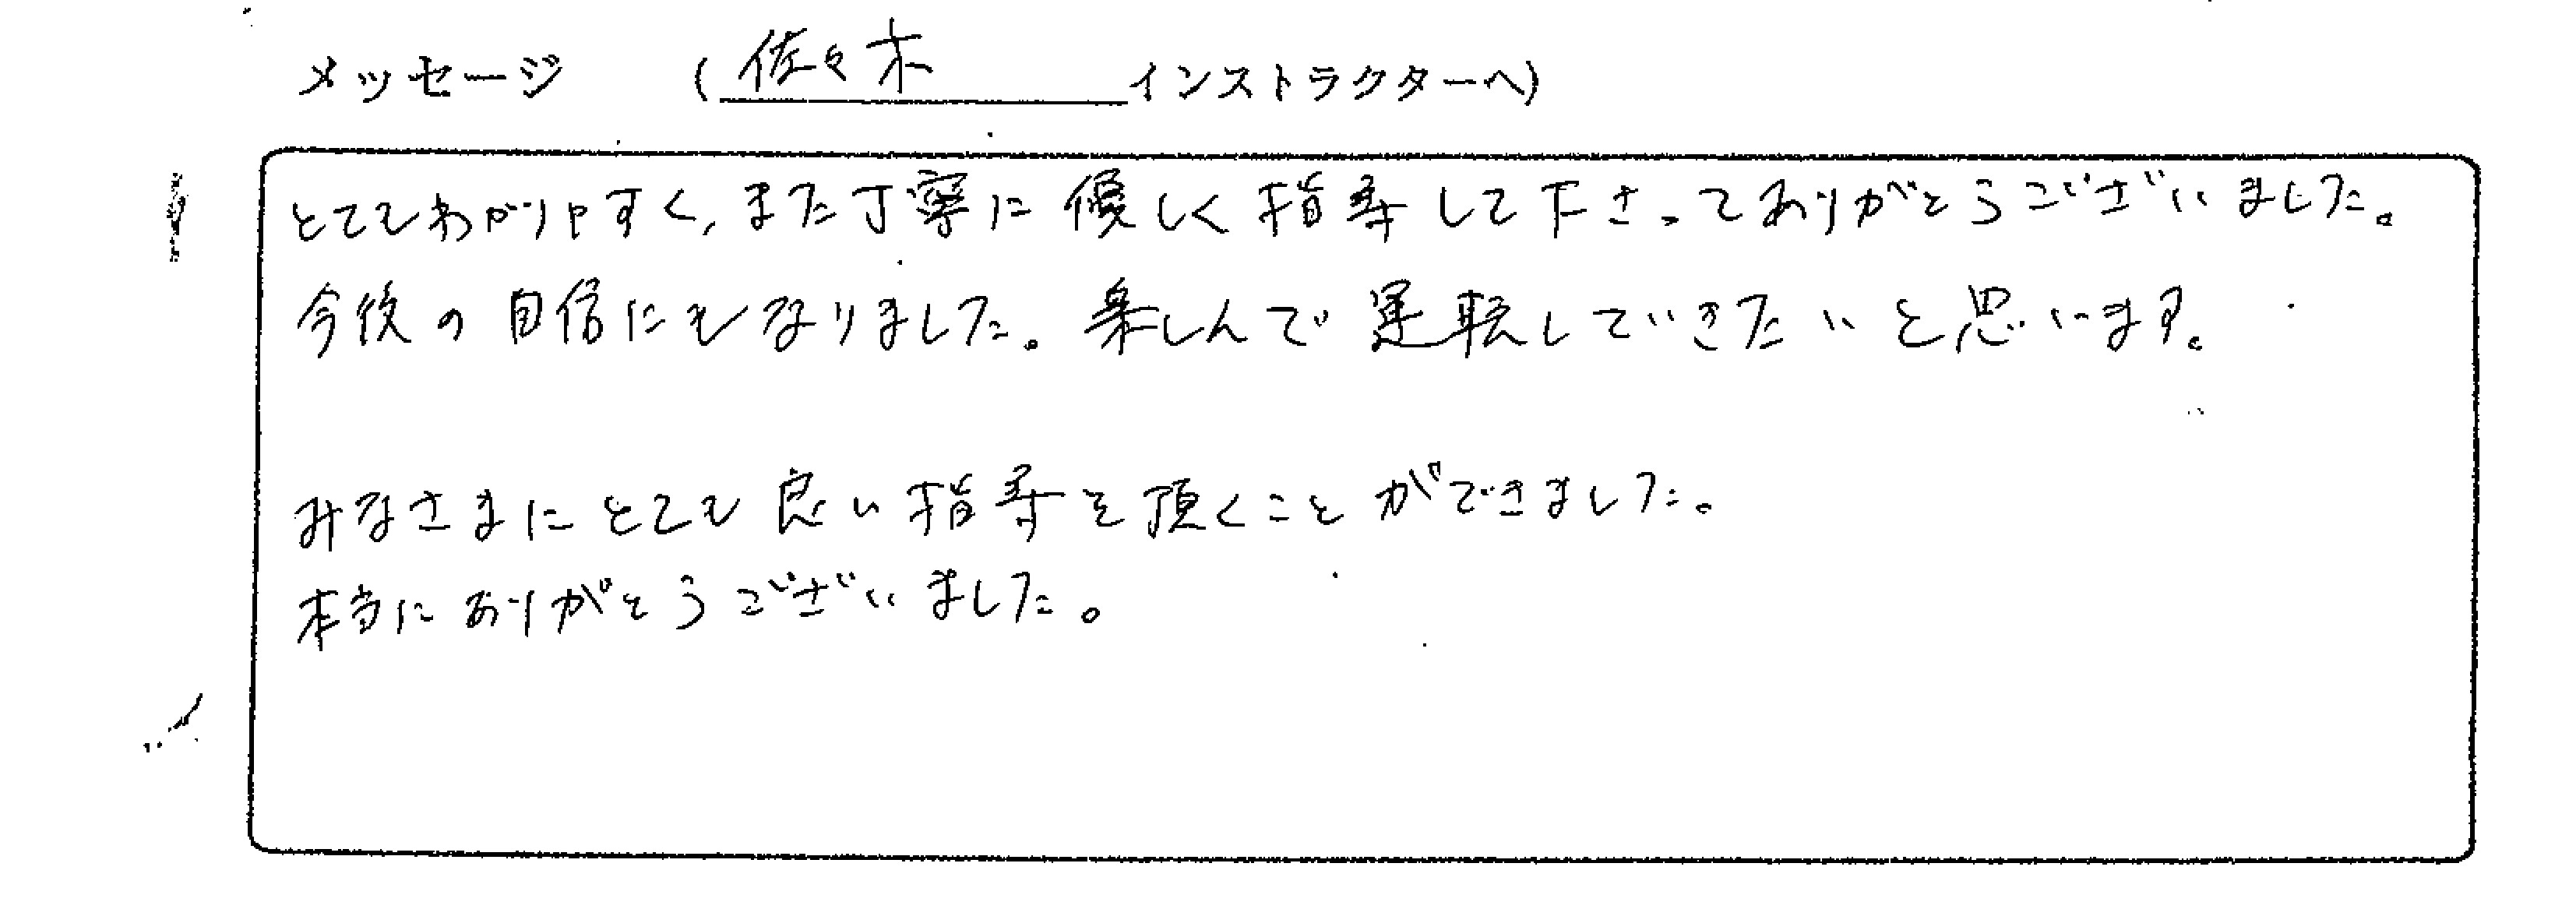 メッセージ (佐々木インストラクターへ)
とてもわかりやすく、また丁寧に優しく指導して下さってありがとうございました。
今後の自信にもなりました。楽しんで運転していきたいと思います。
みなさまにとても良い指導を頂くことができました。
本当にありがとうございました。